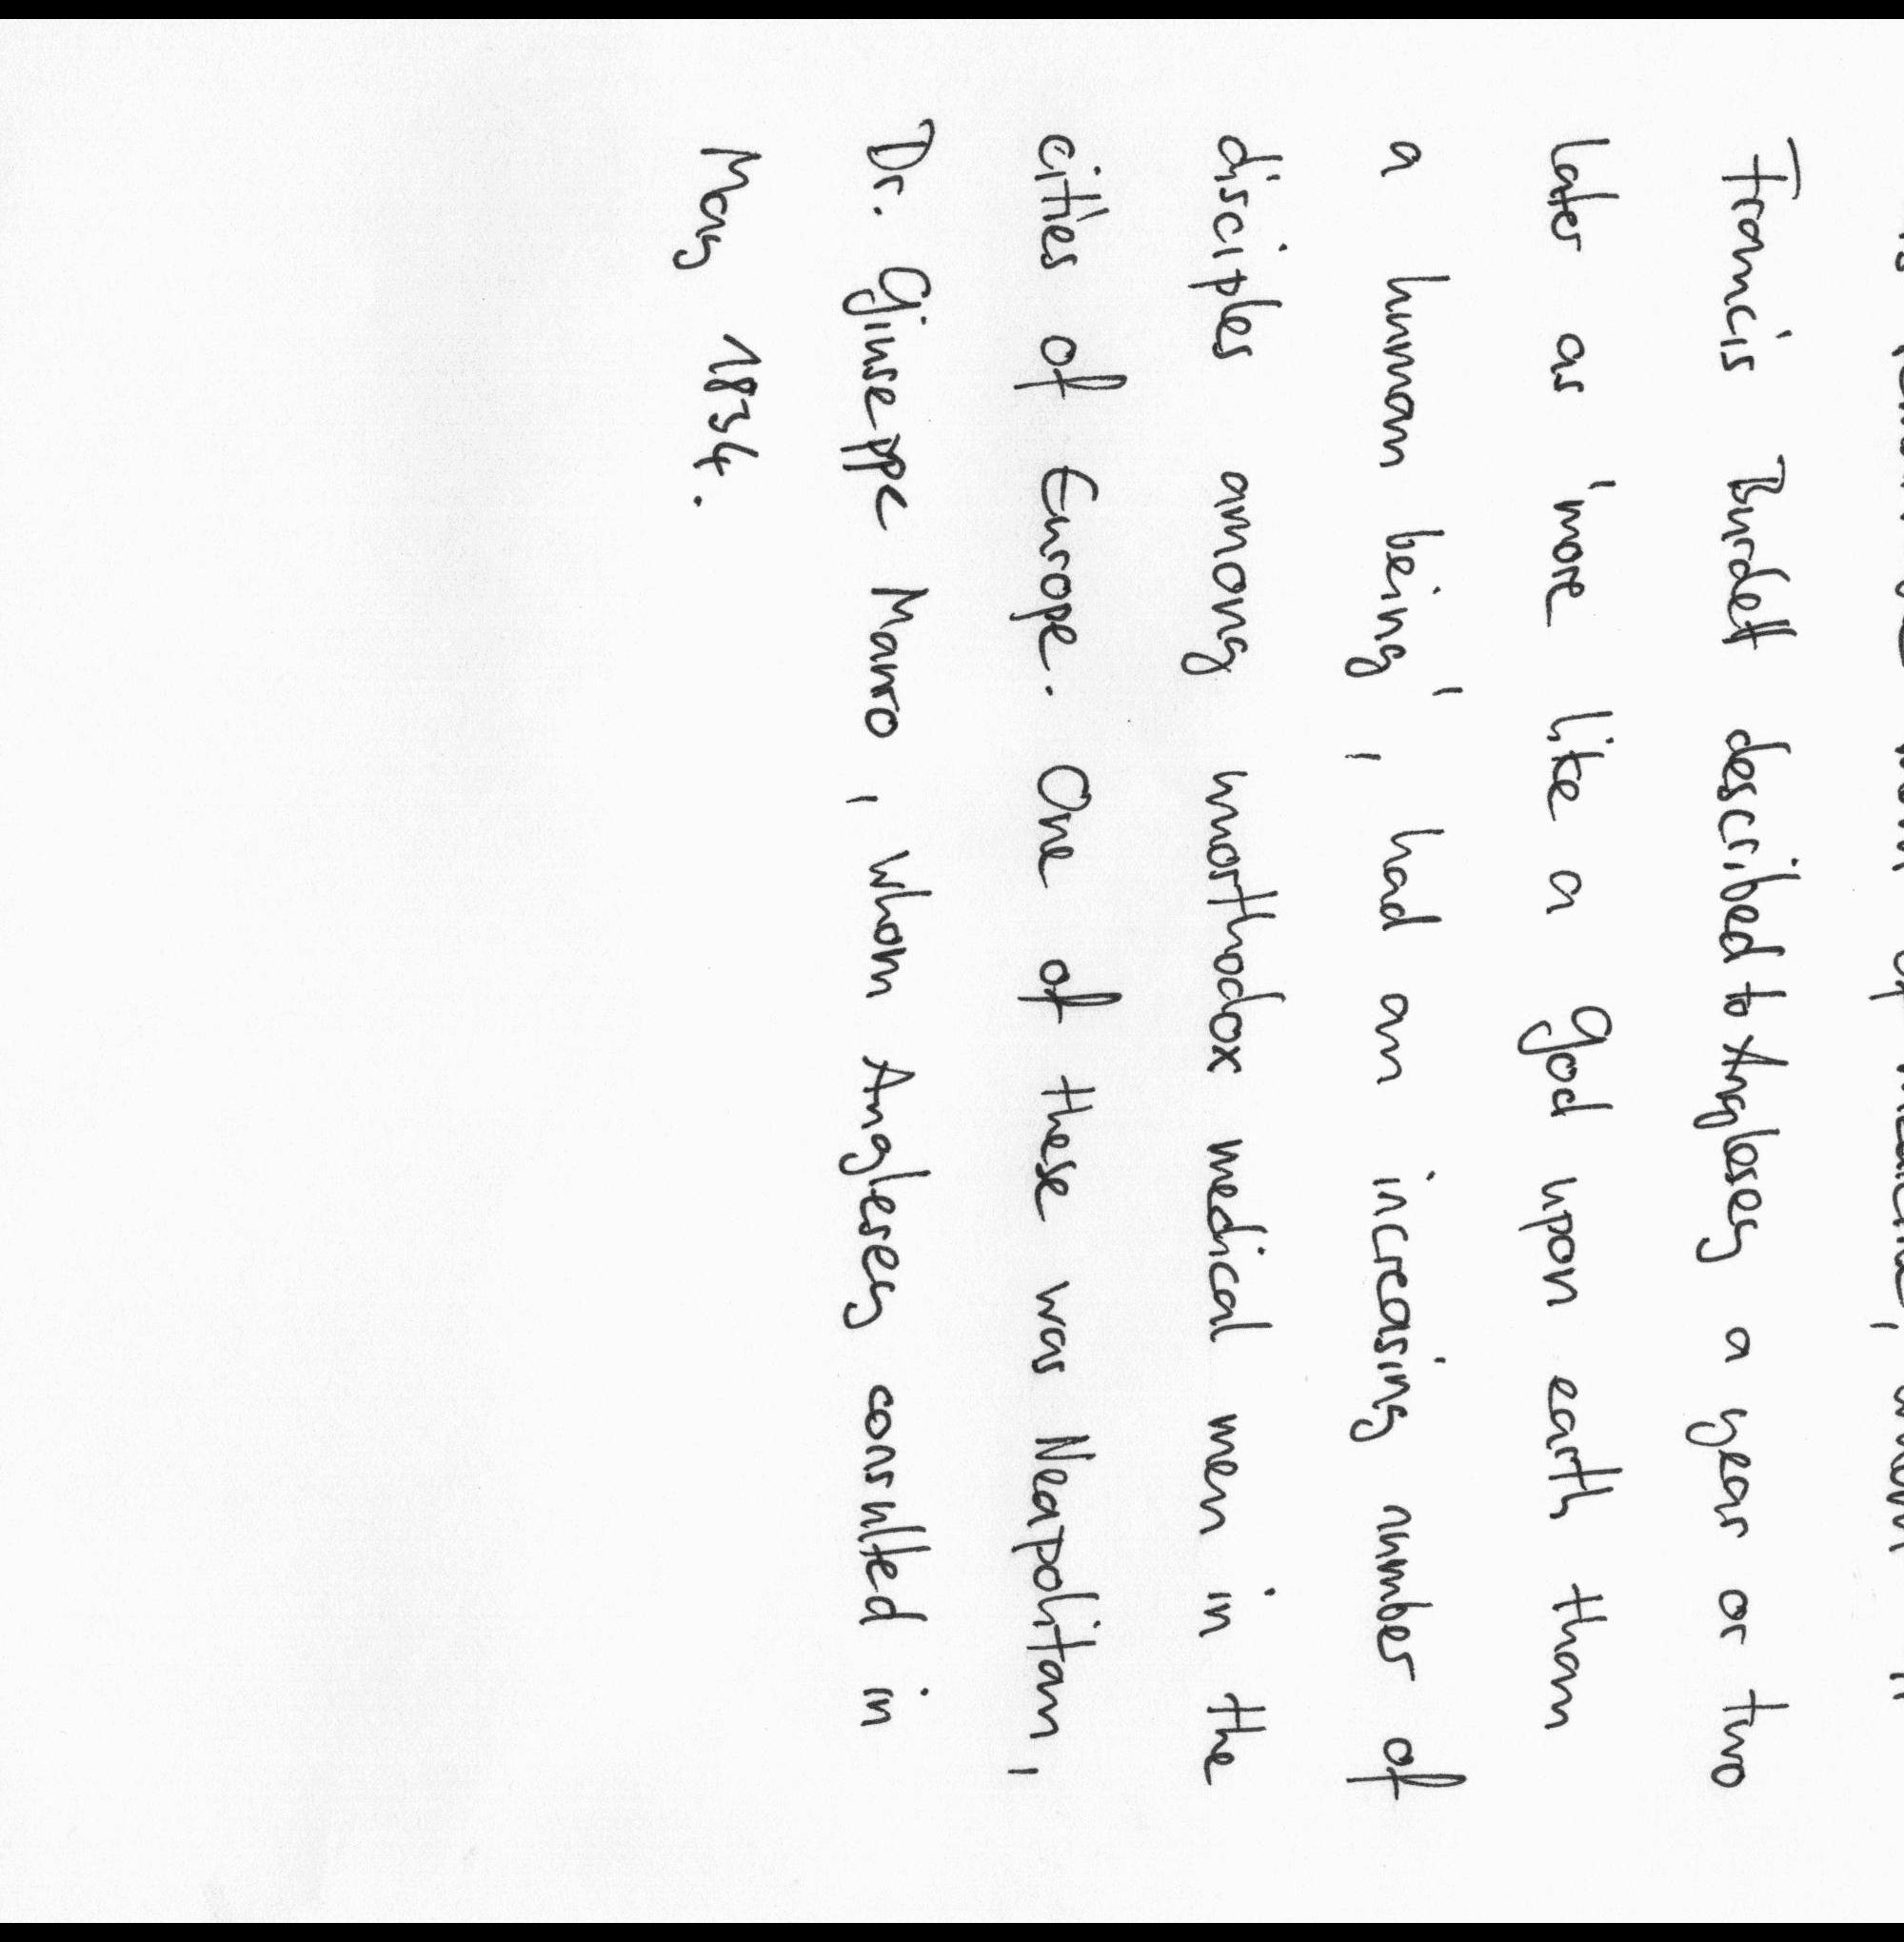 Francis Burdett described to Anglesey a year or two
later as 'more like a god upon earth than
a human being', had an increasing number of
disciples among unorthodox medical men in the
cities of Europe. One of these was Neapolitan,
Dr. Giuseppe Manro, whom Anglesey consulted in
May 1834.